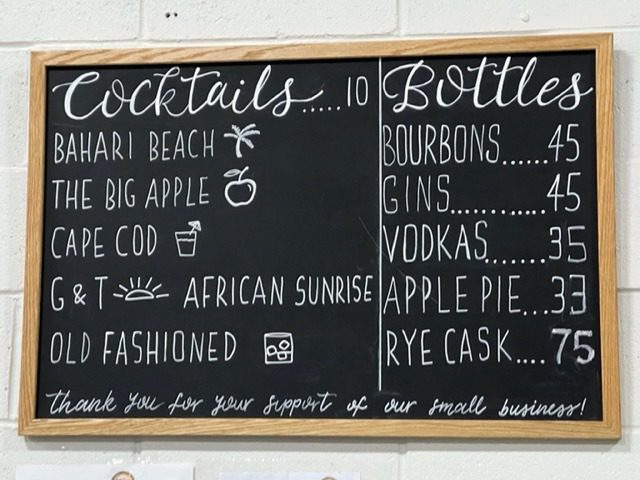 Cocktails.....10
BAHARI BEACH
THE BIG APPLE
CAPE COD
G & T AFRICAN SUNRISE
OLD FASHIONED
Bottles
BOURBONS......45
GINS............45
VODKAS.......35
APPLE PIE...33
RYE CASK....75
thank you for your support of our small business!